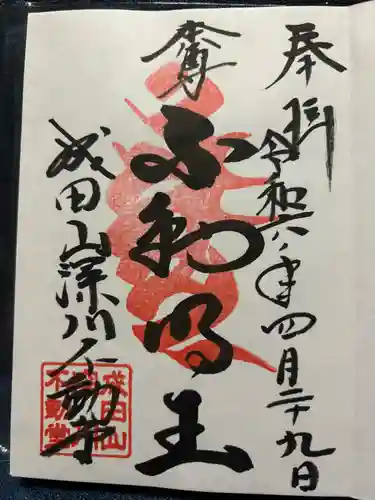 奉拝
令和六年四月二十九日
本尊
不動明王
成田山深川不動堂
成田山
深川
不動堂